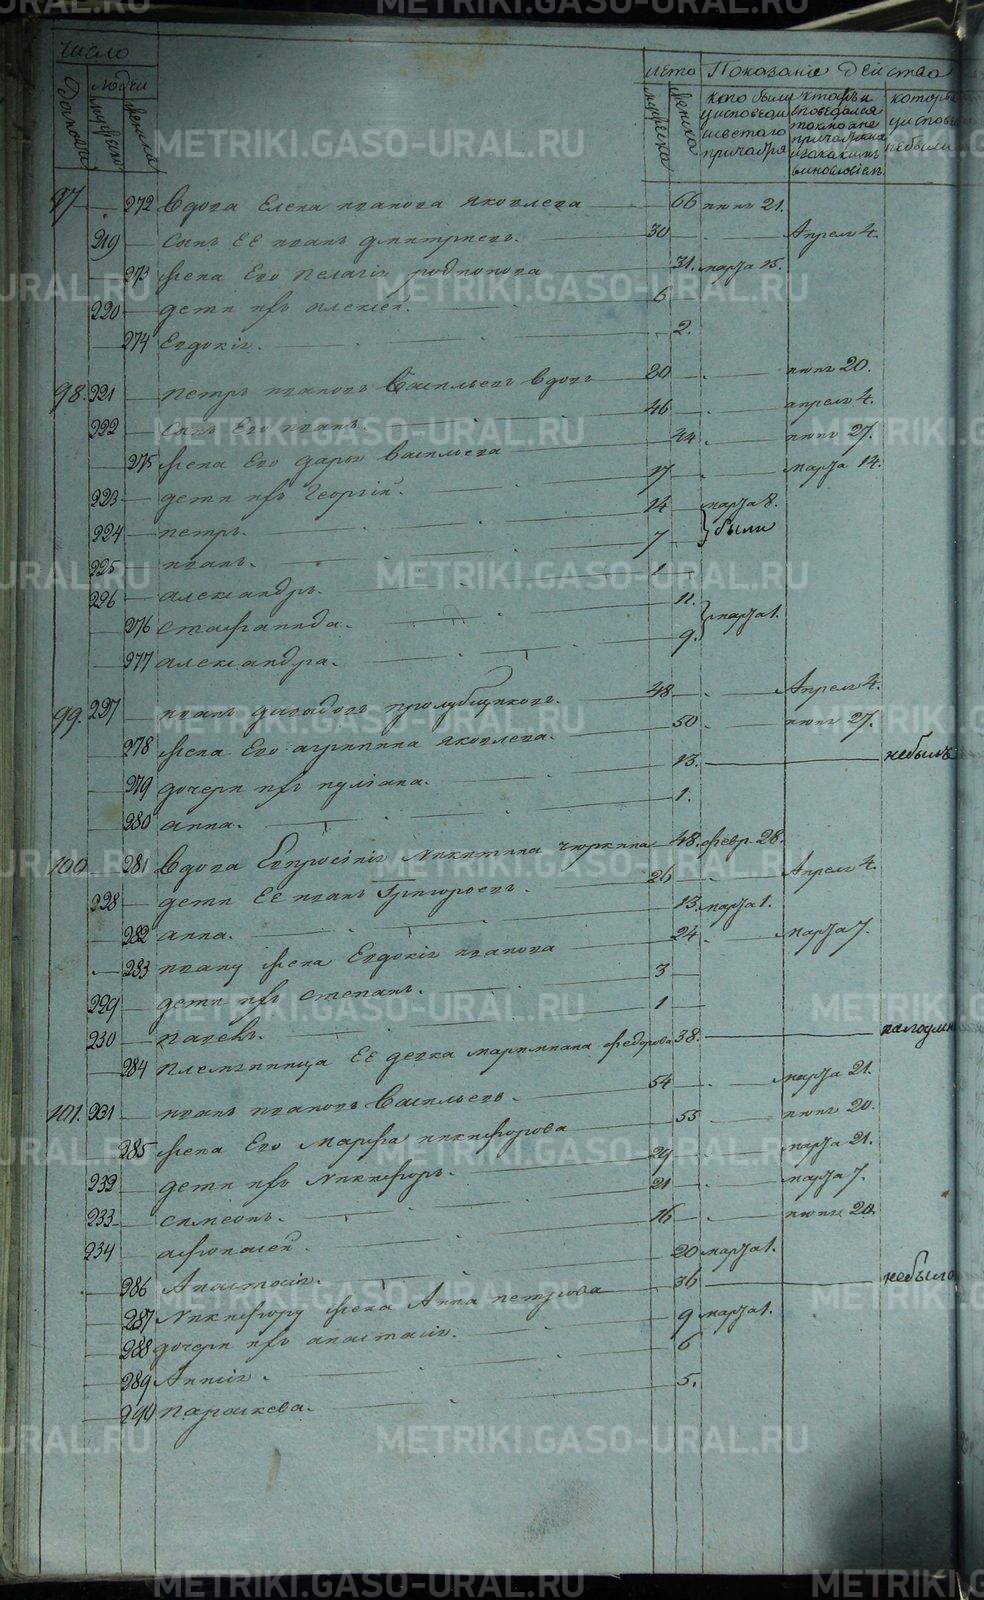 METRIKI.GASO-URAL.RU
Число
людей
домовъ
мужеска
женска
лета
мужеска
женска
Показание действа
кого были
у исповеди
и святаго
причастия
которыи
у исповеди
небыли
97. 272 вдова Елена иванова яковлева 66 июня 21.
219 сынъ ЕЕ иванъ дмитриевъ. 30 Апреля 4.
273 жена Его пелагия родионова 31. марта 15.
220 дети ихъ алексей. 6
274 Евдокия. 2.
98. 221 петръ ивановъ васильевъ вдовъ 80 июня 20.
222 сынъ Его иванъ. 46 апреля 4.
275 жена Его дарья васильева 44 июня 27.
223 дети ихъ георгий. 17 марта 14.
224 петръ. 14 марта 8.
225 иванъ. 7 были
226 александръ. 1
276 стефанида. 11.
277 александра. 9. марта 1.
99. 227 иванъ давыдовъ пролубщиковъ. 48 Апреля 4.
278 жена Его агрипина яковлева. 50 июня 27.
279 дочери ихъ иулиана. 13. небылъ
280 анна. 1.
100. 281 вдова Евфросиния никитина чюркина 48. февр. 28.
228 дети ЕЕ иванъ Григорьевъ. 26 Апреля 4.
282 анна. 13. марта 1.
283 ивану жена Евдокия иванова 24 марта 7.
229 дети ихъ степанъ. 3
230 павелъ. 1
284 племянница ЕЕ девка маримиана федорова 38. малоумн
101. 231 иванъ ивановъ васильевъ. 54 марта 21.
285 жена Его марфа никифорова 55 июня 20.
232 дети ихъ никифоръ. 29 марта 21.
233 симеонъ. 21 марта 7.
234 афонасей. 16 июня 20.
286 Анастасия. 20 марта 1.
287 никифору жена Анна петрова 36 небыла
288 дочери ихъ анастасия. 9 марта 1.
289 Анисия. 6
290 параскева. 5.